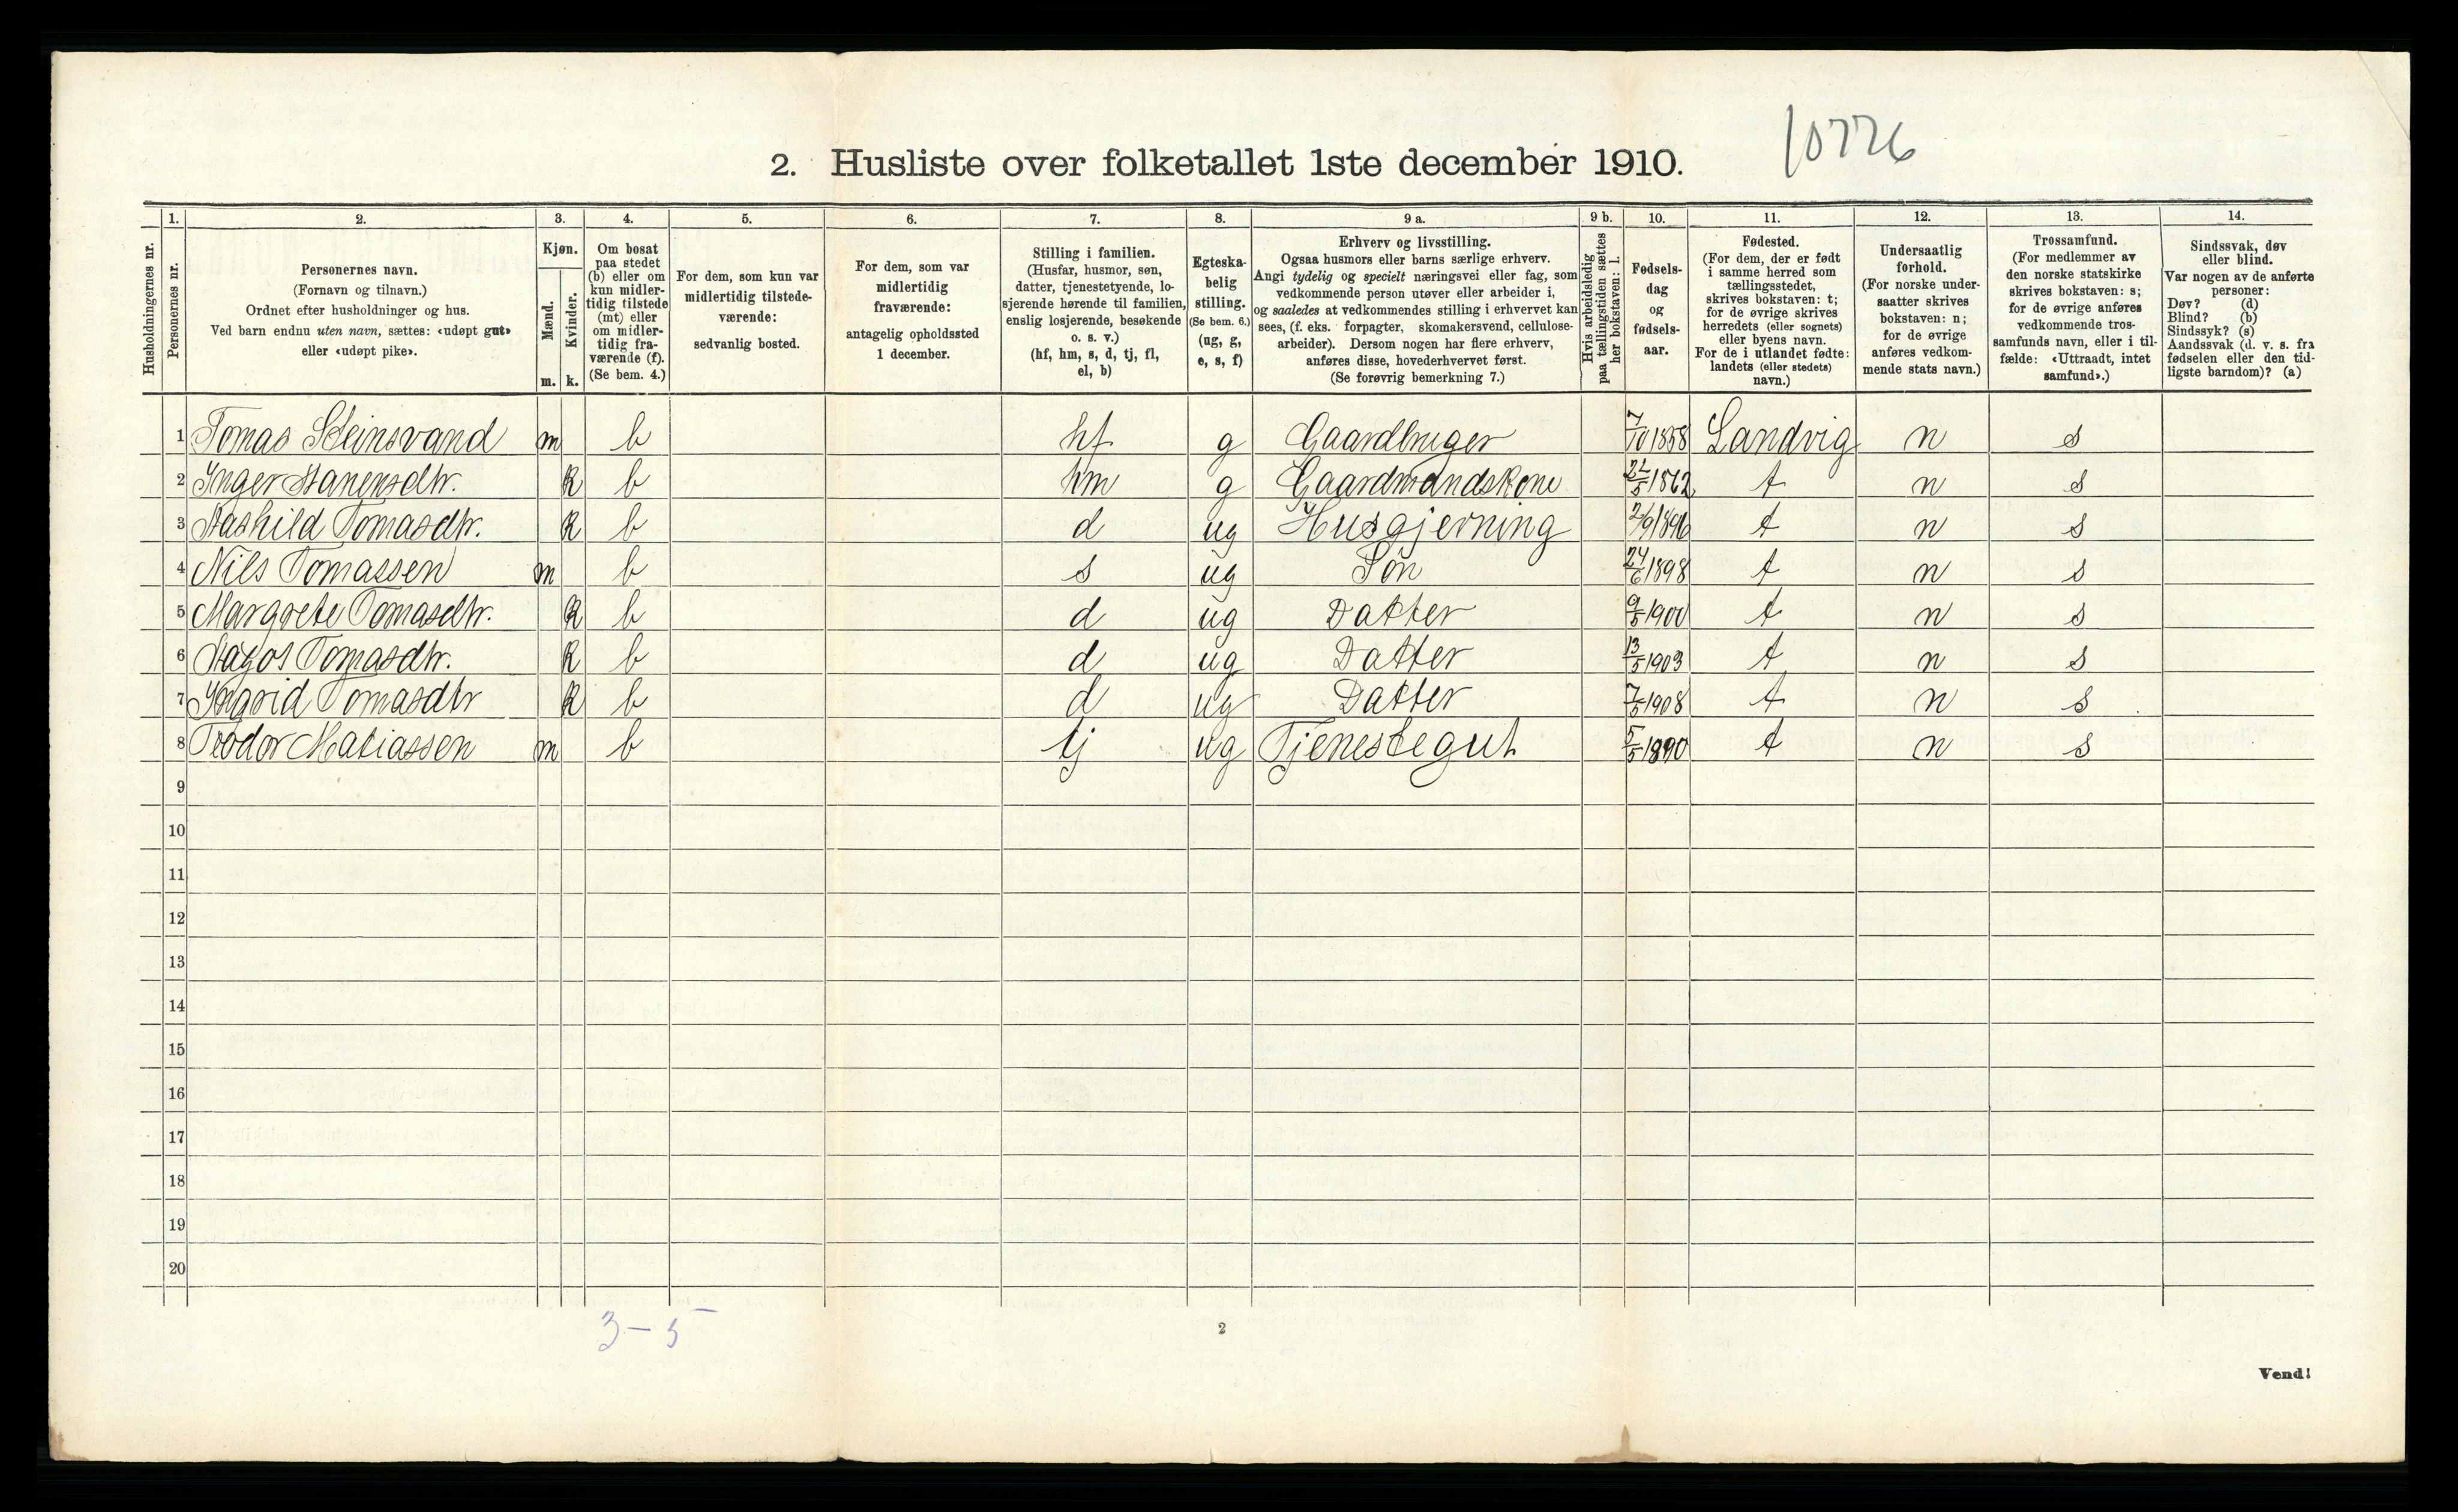 10776
2. Husliste over folketallet 1ste december 1910.
Husholdningernes nr.
1. Personernes nr.
2. Personernes navn.
(Fornavn og tilnavn.)
Ordnet efter husholdninger og hus.
Ved barn endnu uten navn, sættes: «udøpt gut»
eller «udøpt pike».
3. Kjøn.
Mænd. m.
Kvinder. k.
4. Om bosat
paa stedet
(b) eller om
kun midler-
tidig tilstede
(mt) eller
om midler-
tidig fra-
værende (f).
(Se bem. 4.)
5. For dem, som kun var
midlertidig tilstede-
værende:
sedvanlig bosted.
6. For dem, som var
midlertidig
fraværende:
antagelig opholdssted
1 december.
7. Stilling i familien.
(Husfar, husmor, søn,
datter, tjenestetyende, lo-
sjerende hørende til familien,
enslig losjerende, besøkende
o. s. v.)
(hf, hm, s, d, tj, fl,
el, b)
8. Egteska-
belig
stilling.
(Se bem. 6.)
(ug, g,
e, s, f)
9 a. Erhverv og livsstilling.
Ogsaa husmors eller barns særlige erhverv.
Angi tydelig og specielt næringsvei eller fag, som
vedkommende person utøver eller arbeider i,
og saaledes at vedkommendes stilling i erhvervet kan
sees, (f. eks. forpagter, skomakersvend, cellulose-
arbeider). Dersom nogen har flere erhverv,
anføres disse, hovederhvervet først.
(Se forøvrig bemerkning 7.)
9 b. Hvis arbeidsledig
paa tællingstiden sættes
her bokstaven: l.
10. Fødsels-
dag
og
fødsels-
aar.
11. Fødested.
(For dem, der er født
i samme herred som
tællingsstedet,
skrives bokstaven: t;
for de øvrige skrives
herredets (eller sognets)
eller byens navn.
For de i utlandet fødte:
landets (eller stedets)
navn.)
12. Undersaatlig
forhold.
(For norske under-
saatter skrives
bokstaven: n;
for de øvrige
anføres vedkom-
mende stats navn.)
13. Trossamfund.
(For medlemmer av
den norske statskirke
skrives bokstaven: s;
for de øvrige anføres
vedkommende tros-
samfunds navn, eller i til-
fælde: «Uttraadt, intet
samfund».)
14. Sindssvak, døv
eller blind.
Var nogen av de anførte
personer:
Døv? (d)
Blind? (b)
Sindssyk? (s)
Aandssvak (d. v. s. fra
fødselen eller den tid-
ligste barndom)? (a)
1 Tomas Steinsvand m b hf g Gaardbruger 7/10 1858 Landvig n s
2 Inger Hanensdtr. k b hm g Gaardmandskone 1862 t n s
3 Aashild Tomasdtr. k b d ug Husgjerning 2/9 1896 t n s
4 Nils Tomassen m b s ug Søn 24/6 1898 t n s
5 Margrete Tomasdtr. k b d ug Datter 9/5 1900 t n s
6 Tomasdtr. k b d ug Datter 13/5 1903 t n s
7 Ingrid Tomasdtr k b d ug Datter 7/5 1908 t n s
8 Teodor Matiassen m b tj ug Tjenestegut 5/5 1890 t n s
9
10
11
12
13
14
15
16
17
18
19
20
3 – 5
2
Vend!